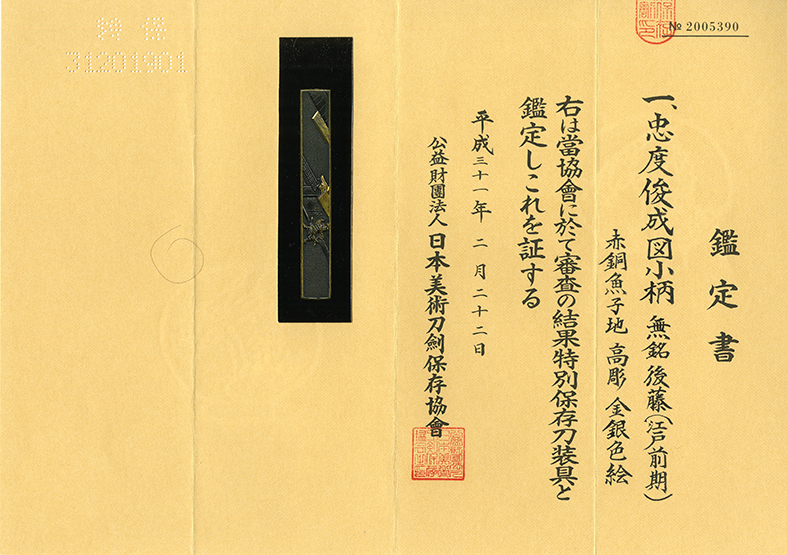 № 2005390
鑑定書
一、忠度俊成図小柄 無銘 後藤(江戸前期)
赤銅魚子地 高彫 金銀色絵
右は當協會に於て審査の結果特別保存刀装具と
鑑定しこれを証する
平成三十一年 二月二十二日
公益財團法人 日本美術刀劍保存協會
31201901